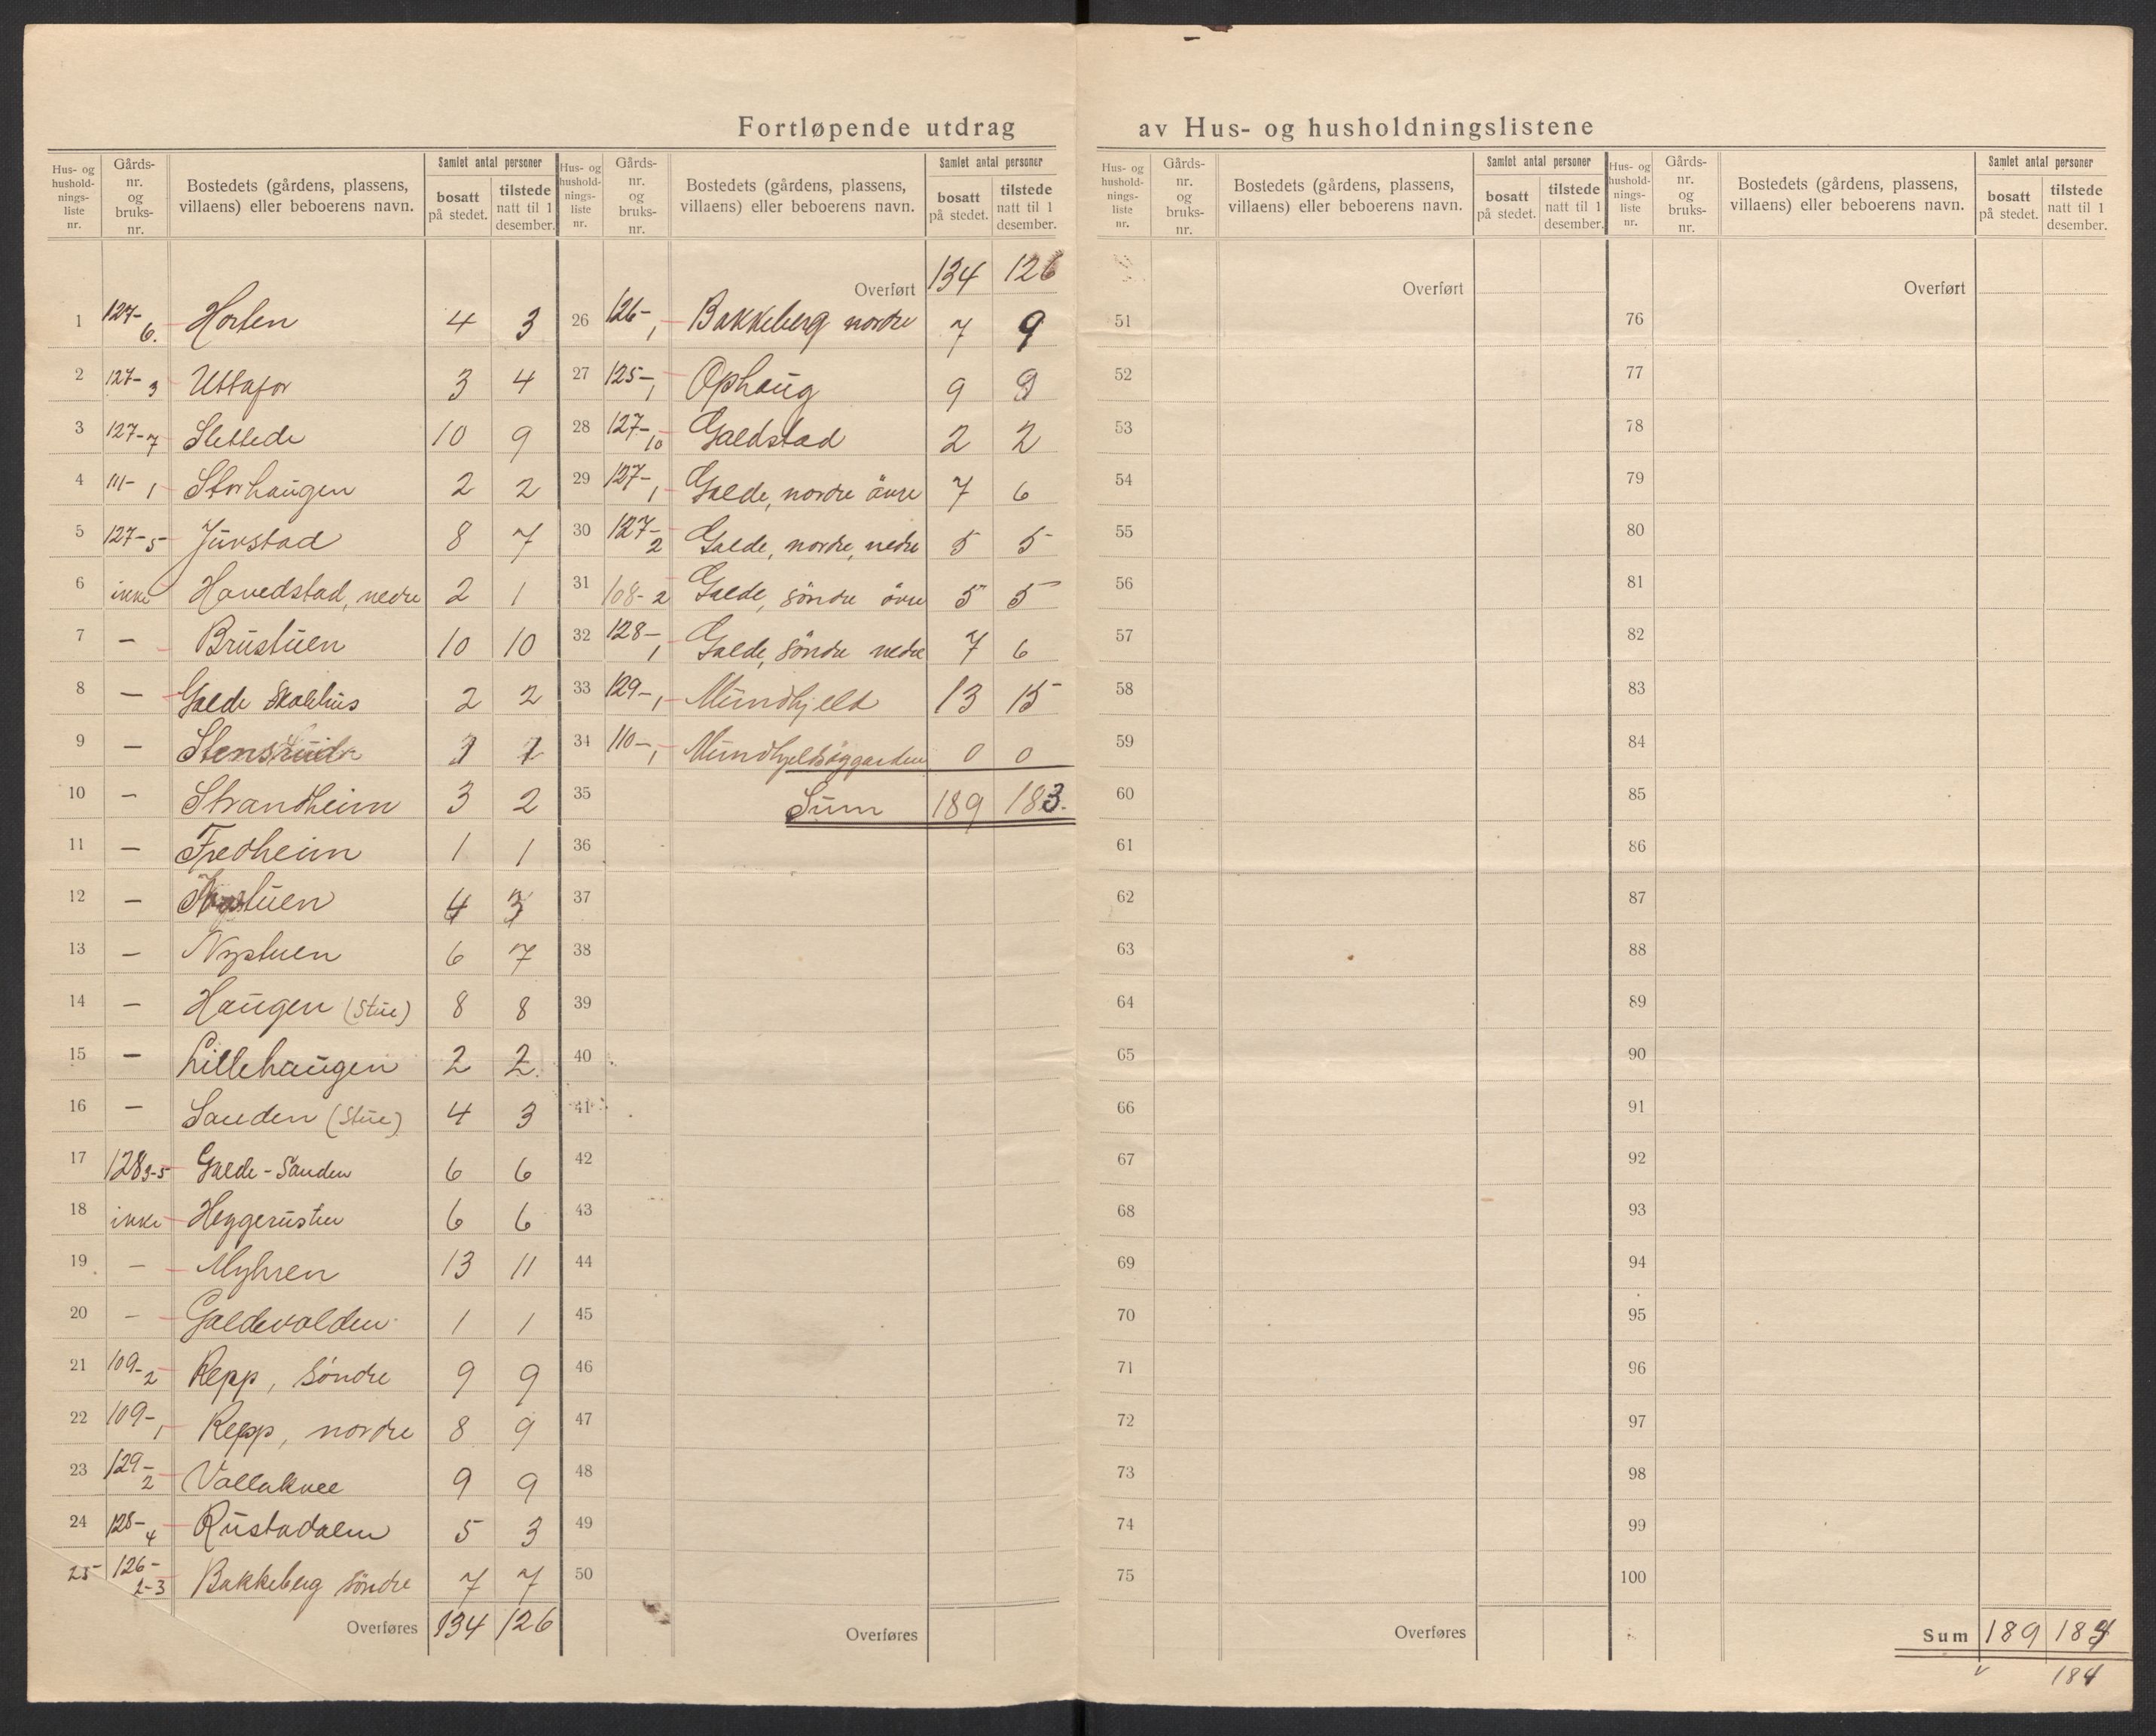 Fortløpende utdrag av Hus- og husholdningslistene
Hus- og hushold-nings-liste nr. Gårds-nr. og bruks-nr. Bostedets (gårdens, plassens, villaens) eller beboerens navn. Samlet antal personer bosatt på stedet. tilstede natt til 1 desember.
1 127-6. Horten 4 3
2 127-3 Uttafor 3 4
3 127-7 Slettede 10 9
4 111-1 Storhaugen 2 2
5 127-5 Juvstad 8 7
6 ikke Havedstad, nedre 2 1
7 — Brustuen 10 10
8 — Galde Skolehus 2 2
9 — 1 1
10 — Strandheim 3 2
11 — Fredheim 1 1
12 — 4 3
13 — Nystuen 6 7
14 — Haugen (Stue) 8 8
15 — Lillehaugen 2 2.
16 — Sanden (Stue) 4 3
17 128 3-5 Galde-Sanden 6 6
18 ikke Heggerusten 6 6
19 — Myhren 13 11
20 — Galdevolden 1 1
21 109-2 Repp, Söndre 9 9
22 109-1 Repp, nordre 8 9
23 129-2 Vollaknee 9 9
24 128-4 Rustadalen 5 3
25 126-2-3 Bakkeberg söndre 7 7
Overføres 134 126
Hus- og hushold-nings-liste nr. Gårds-nr. og bruks-nr. Bostedets (gårdens, plassens, villaens) eller beboerens navn. Samlet antal personer bosatt på stedet. tilstede natt til 1 desember.
Overført 134 126
26 126-1 Bakkeberg nordre 7 9
27 125-1 Ophaug 9 9
28 127-10 Galdstad 2 2
29 127-1 Galde, nordre övre 7 6
30 127-2 Galde, nordre, nedre 5 5
31 108-2 Galde, söndre övre 5 5
32 128-1 Galde, söndre nedre 7 6
33 129-1 Mundhjeld 13 15
34 110-1 Mundhjeldsöygarden 0 0
35 Sum 189 183.
36
37
38
39
40
41
42
43
44
45
46
47
48
49
50
Overføres
Hus- og hushold-nings-liste nr. Gårds-nr. og bruks-nr. Bostedets (gårdens, plassens, villaens) eller beboerens navn. Samlet antal personer bosatt på stedet. tilstede natt til 1 desember.
Overført
51
52
53
54
55
56
57
58
59
60
61
62
63
64
65
66
67
68
69
70
71
72
73
74
75
Overføres
Hus- og hushold-nings-liste nr. Gårds-nr. og bruks-nr. Bostedets (gårdens, plassens, villaens) eller beboerens navn. Samlet antal personer bosatt på stedet. tilstede natt til 1 desember.
Overført
76
77
78
79
80
81
82
83
84
85
86
87
88
89
90
91
92
93
94
95
96
97
98
99
100
Sum 189 184
184